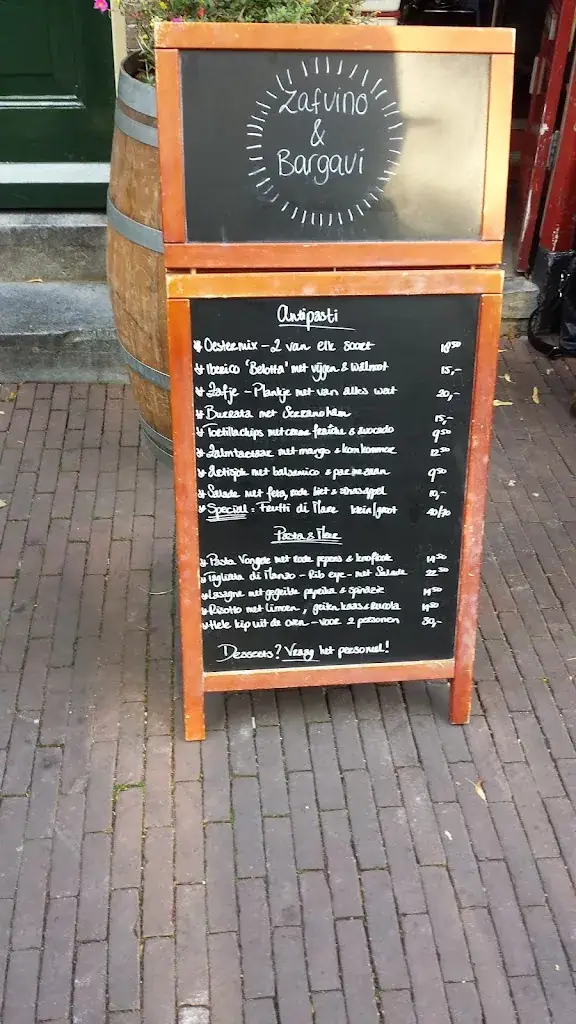 Zafvino
&
Bargavi
Antipasti
* Oestermix - 2 van elk soort 18⁵⁰
* Iberico 'Bellotta' met vijgen & walnoot 15,-
* Zafje - Plankje met van alles wat 20,-
* Burrata met Serranoham 15,-
* Tortillachips met creme fraîche & avocado 9⁵⁰
* Zalmtartaar met mango & komkommer 12⁵⁰
* Artisjok met balsamico & parmezaan 9⁵⁰
* Salade met feta, rode biet & sinasappel 10,-
* Special: Frutti di Mare klein/groot 40/70
Pasta & Mare
* Pasta Vongole met rode pepers & knoflook 19⁵⁰
* Tagliata di Manzo - Rib eye - met Salade 22⁵⁰
* Lasagne met gegrilde paprika & spinazie 14⁵⁰
* Risotto met limoen, geiten kaas & rucola 14⁵⁰
* Hele kip uit de oven - voor 2 personen 30,-
Desserts? Vraag het personeel!